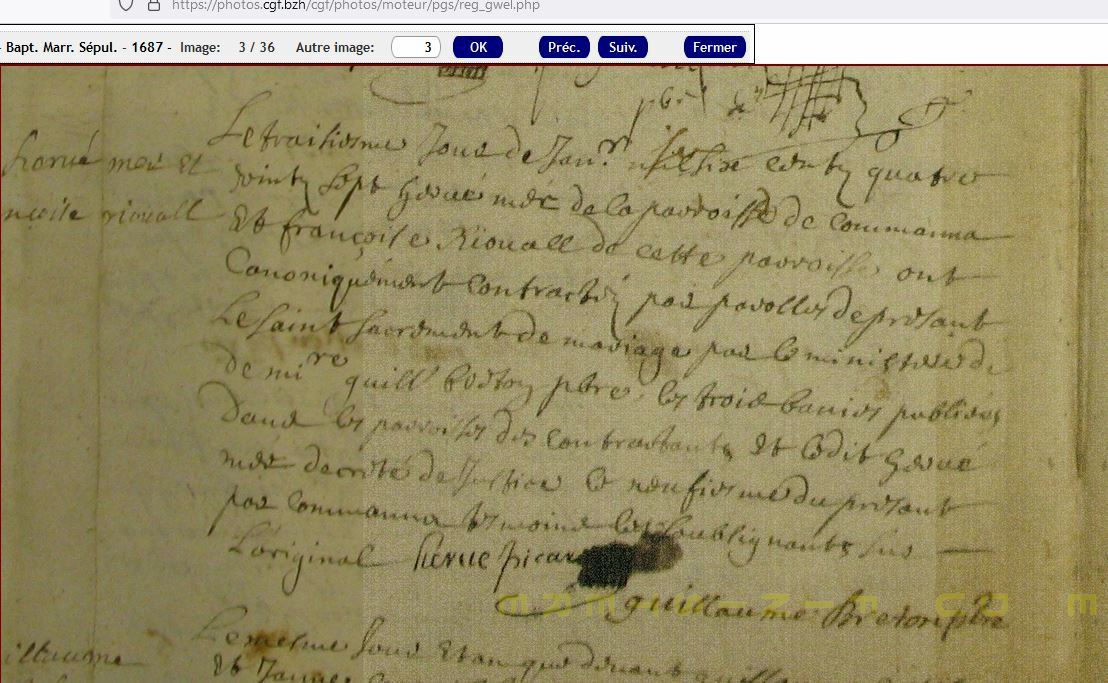 https://photos.cgf.bzh/cgf/photos/moteur/pgs/reg_gwel.php
- Bapt. Marr. Sépul. - 1687 - Image: 3 / 36 Autre image: 3 OK Préc. Suiv. Fermer
pbr
herué mer Et
ncoise riouall
Le traisiesme Jour de Jan.r mil six centz quatre
vintz sept herué mér de la parroisse de commanna
Et françoise Riouall de cette parroisse ont
Canoniquement Contractéz par parolles de presant
Le saint sacrement de mariage par le ministere
de mire guill breton ptre les trois banies publiées
dans les parroisses des contractants Et ledit herué
mér decreté de Justice le neufiesme du presant
par Commanna tesmoins les soubsignants sus
L'original herue picar
guillaume Breton ptre
Le mesme Jour Et an que devant
illaume
Et